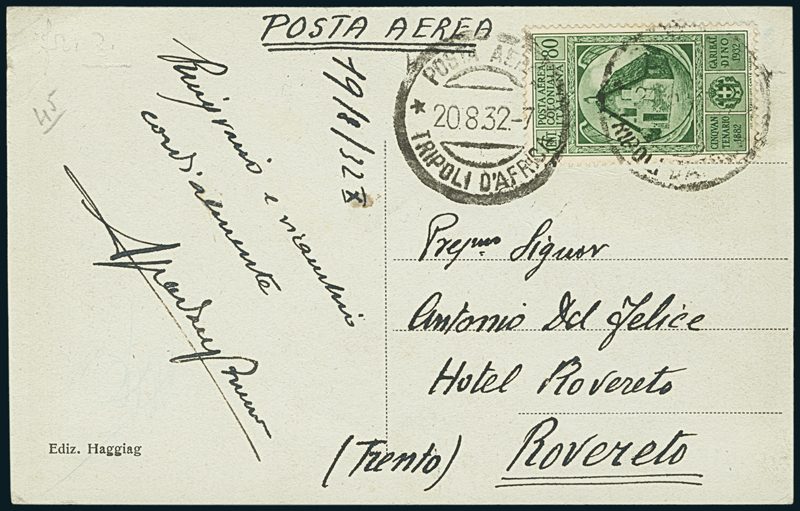 POSTA AEREA
45
19/8/32 X
Ringrazio e ricambio
cordialmente
POSTA AEREA
20.8.32.-7
TRIPOLI D'AFRICA
POSTA AEREA
COLONIALE
80
GARIBAL
DINO
1932
CINQVAN
TENARIO
1882
TRIPOLI D'AFRICA
Preg.mo Signor
Antonio Del Felice
Hotel Rovereto
(Trento) Rovereto
Ediz. Haggiag